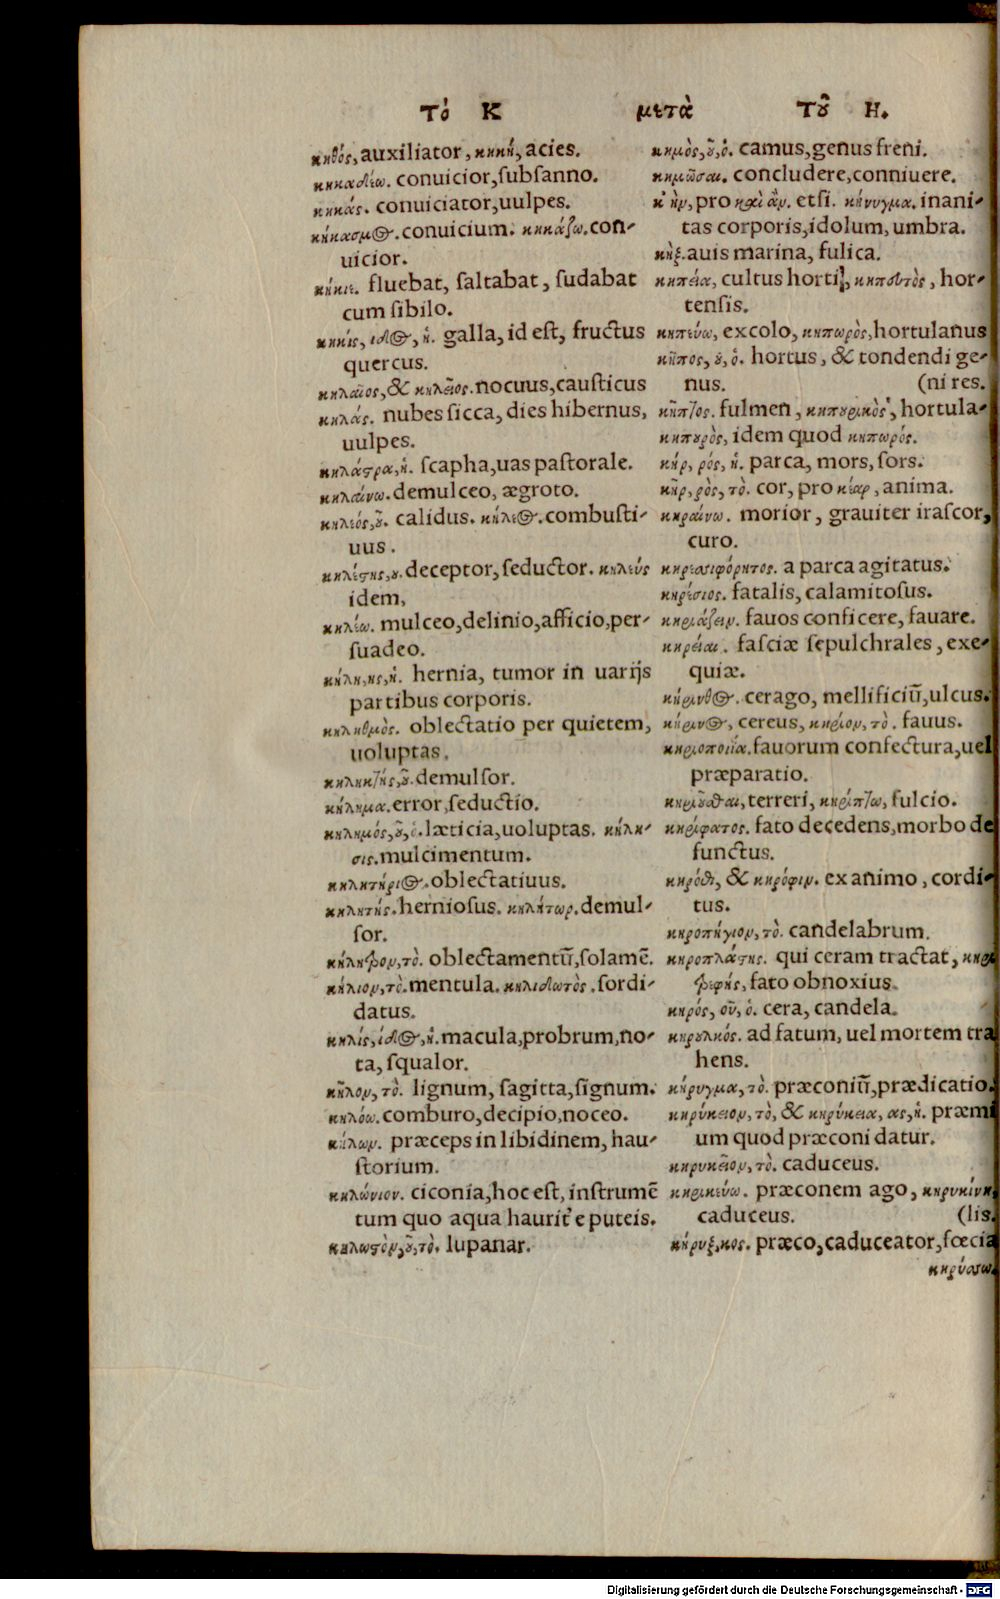 Τὸ Κ μετὰ Τοῦ Η.
κηθός, auxiliator, κηκή, acies.
κηκαδέω. conuicior, ſubſanno.
κηκάς. conuiciator, uulpes.
κήκασμος. conuicium. κηκάζω. con-
uicior.
κήκιε. fluebat, ſaltabat, ſudabat
cum ſibilo.
κηκίς, ιδος, ἡ. galla, id eſt, fructus
quercus.
κηλαῖος, & κηλεῖος. nocuus, cauſticus
κηλάς. nubes ſicca, dies hibernus,
uulpes.
κηλάστρα, ἡ. ſcapha, uas paſtorale.
κηλαίνω. demulceo, ægroto.
κηλεός, οῦ. calidus. κήλεος. combuſti-
uus.
κηλέστης, ου. deceptor, ſeductor. κηλεύς
idem,
κηλέω. mulceo, delinio, afficio, per-
ſuadeo.
κήλη, ης, ἡ. hernia, tumor in uarijs
partibus corporis.
κηληθμὸς. oblectatio per quietem,
uoluptas.
κηληκτής, οῦ. demulſor.
κήλημα. error, ſeductio.
κηλημός, οῦ, ὁ. læticia, uoluptas. κήλη-
σις. mulcimentum.
κηλητήριος. oblectatiuus.
κηλητής. hernioſus. κηλήτωρ. demul-
ſor.
κήληθρον, τὸ. oblectamentũ, ſolamẽ.
κήλιον, τὸ. mentula. κηλιδωτὸς. ſordi-
datus.
κηλίς, ίδος, ἡ. macula, probrum, no-
ta, ſqualor.
κῆλον, τὸ. lignum, ſagitta, ſignum.
κηλόω. comburo, decipio, noceo.
κήλων. præceps in libidinem, hau-
ſtorium.
κηλώνιον. ciconia, hoc eſt, inſtrumẽ
tum quo aqua haurit' e puteis.
κηλωστὸν, οῦ, τὸ. lupanar.
κημὸς, οῦ, ὁ. camus, genus freni.
κημῶσαι. concludere, conniuere.
κ' ἢν, pro καὶ ἂν. etſi. κήνυγμα. inani-
tas corporis, idolum, umbra.
κὴξ. auis marina, fulica.
κηπεία, cultus horti, κηπευτὸς, hor-
tenſis.
κηπεύω, excolo, κηπωρὸς, hortulanus
κῆπος, ου, ὁ. hortus, & tondendi ge-
nus. (ni res.
κῆπτος. fulmen, κηπουρικὸς, hortula-
κηπουρὸς, idem quod κηπωρός.
κήρ, ρός, ἡ. parca, mors, ſors.
κῆρ, ρὸς, τὸ. cor, pro κέαρ, anima.
κηραίνω. morior, grauiter iraſcor,
curo.
κηρεσιφόρητος. a parca agitatus.
κηρέσιος. fatalis, calamitoſus.
κηριάζειν. fauos conficere, fauare.
κηρέιαι. faſciæ ſepulchrales, exe-
quiæ.
κήρινθος. cerago, mellificiũ, ulcus.
κήρινος, cereus, κηρίον, τὸ. fauus.
κηριοποιία. fauorum confectura, uel
præparatio.
κηριοῦσθαι, terreri, κηρίπτω, fulcio.
κηρίφατος. fato decedens, morbo de
functus.
κηρόθι, & κηρόφιν. ex animo, cordi-
tus.
κηροπήγιον, τὸ. candelabrum.
κηροπλάστης. qui ceram tractat, κηρι
τρεφής, fato obnoxius.
κηρός, οῦ, ὁ. cera, candela.
κηρουλκός. ad fatum, uel mortem tra
hens.
κήρυγμα, τὸ. præconiũ, prædicatio.
κηρύκειον, τὸ, & κηρύκεια, ας, ἡ. præmi
um quod præconi datur.
κηρυκεῖον, τὸ. caduceus.
κηρικεύω. præconem ago, κηρυκίνη,
caduceus. (lis.
κήρυξ, κος. præco, caduceator, fœcia
κηρύσσω.
Digitalisierung gefördert durch die Deutsche Forschungsgemeinschaft - DFG